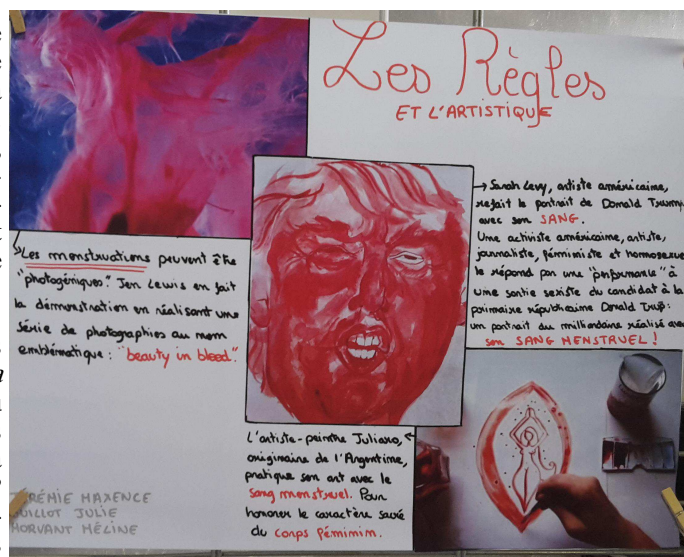 Les Règles
ET L'ARTISTIQUE
→ Sarah Levy, artiste américaine,
refait le portrait de Donald Trump
avec son SANG.
Une activiste américaine, artiste,
journaliste, féministe et homosexue
le répond par une "performance" à
une sortie sexiste du candidat à la
primaire républicaine Donald Trup:
um portrait du milliardaire réalisé avec
son SANG MENSTRUEL !
Les menstruations peuvent être
"photogéniques". Jen Lewis en fait
la démonstration en réalisant une
série de photographies au nom
emblématique : "beauty in blood".
L'artiste-peintre Juliaro,
originaire de l'Argentine,
pratique son art avec le
sang menstruel. Pour
honorer le caractère sacré
du corps féminim.
JÉRÉMIE MAXENCE
GUILLOT JULIE
MORVANT MÉLINE